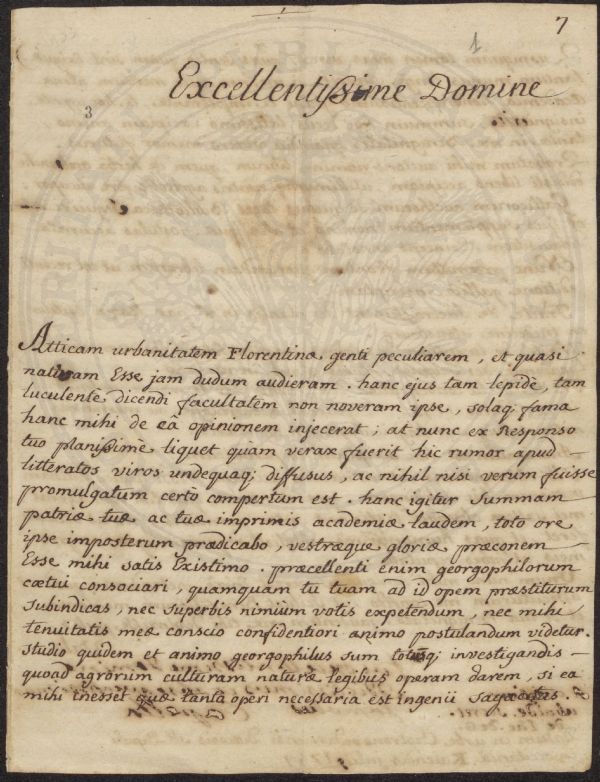 7
1
Excellentissime Domine
3
Atticam urbanitatem Florentinæ genti peculiarem, et quasi
naturam Esse jam dudum audieram. hanc ejus tam lepidè, tam
luculentè dicendi facultatem non noveram ipse, solaq; fama
hanc mihi de eâ opinionem injecerat; at nunc ex Responso
tuo planissimè liquet quàm verax fuerit hic rumor apud
litteratos viros undequaq; diffusus, ac nihil nisi verum fuisse
promulgatum certo compertum est. hanc igitur summam
patriæ tuæ ac tuæ imprimis academiæ laudem, toto ore
ipse imposterum prædicabo, vestræque gloriæ præconem
Esse mihi satis Existimo. præcellenti enim georgophilorum
cœtui consociari, quamquam tu tuam ad id opem præstiturum
subindicas, nec superbis nimium votis expetendum, nec mihi
tenuitatis meæ conscio confidentiori animo postulandum videtur.
studio quidem et animo georgophilus sum investigandis
quoad agrorum culturam naturæ legibus operam darem, si ea
mihi inesset quæ tanta operi necessaria est ingenii sagacitas.